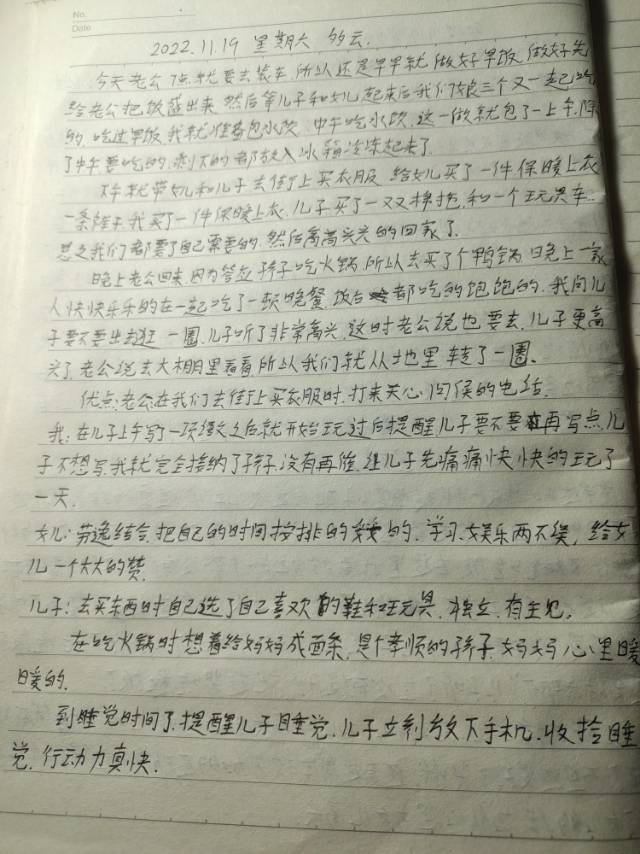 No.
Date
2022.11.19 星期六 多云.
今天老公7点就要去装车 所以还是早早就做好早饭 做好先
给老公把饭盛出来 然后等儿子和女儿起来后我们娘三个又一起吃
的. 吃过早饭. 我就准备包水饺. 中午吃水饺. 这一做就包了一上午. 除
了中午要吃的. 剩下的都放入冰箱冷冻起来了.
下午就带女儿和儿子去街上买衣服 给女儿买了一件保暖上衣
一条裤子. 我买了一件保暖上衣. 儿子买了一双棉拖. 和一个玩具车.
总之我们都买了自己需要的. 然后高高兴兴的回家了.
晚上老公回来. 因为答应孩子吃火锅. 所以去买了个鸭锅. 晚上一家
人快快乐乐的在一起吃了一顿晚餐. 饭后 都吃的饱饱的. 我问儿
子要不要出去逛一圈. 儿子听了非常高兴. 这时老公说也要去. 儿子更高
兴了. 老公说去大棚里看看 所以我们就从地里转了一圈.
优点: 老公在我们去街上买衣服时. 打来关心问候的电话.
我: 在儿子上午写了一项作业之后就开始玩 过后提醒儿子要不要再写点 儿
子不想写. 我就完全接纳了孩子. 没有再催. 让儿子先痛痛快快的玩了
一天.
女儿: 劳逸结合. 把自己的时间安排的 的. 学习. 娱乐两不误, 给女
儿一个大大的赞.
儿子: 去买东西时自己选了自己喜欢的鞋和玩具. 独立. 有主见.
在吃火锅时想着给妈妈成面条, 是个孝顺的孩子. 妈妈心里暖
暖的.
到睡觉时间了. 提醒儿子睡觉. 儿子立刻放下手机. 收拾睡
觉. 行动力真快.